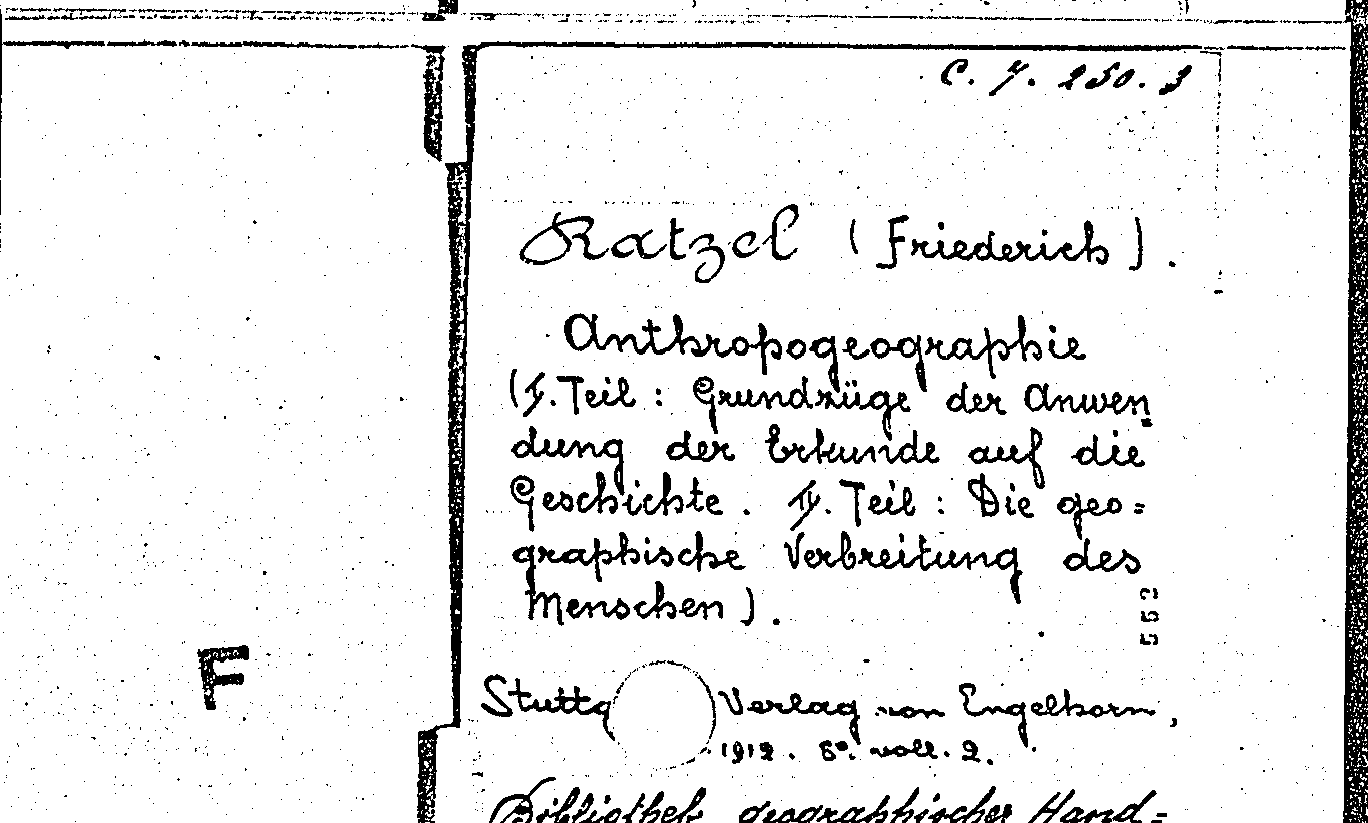 C. 7. 250. 3
Ratzel (Friederich).
Anthropogeographie
(I. Teil: Grundzüge der Anwen
dung der Erkunde auf die
Geschichte. II. Teil: Die geo=
graphische Verbreitung des
Menschen).
552
F
Stuttg Verlag von Engelhorn,
1912. 8º. voll. 2.
Bibliothek geographischer Hand=